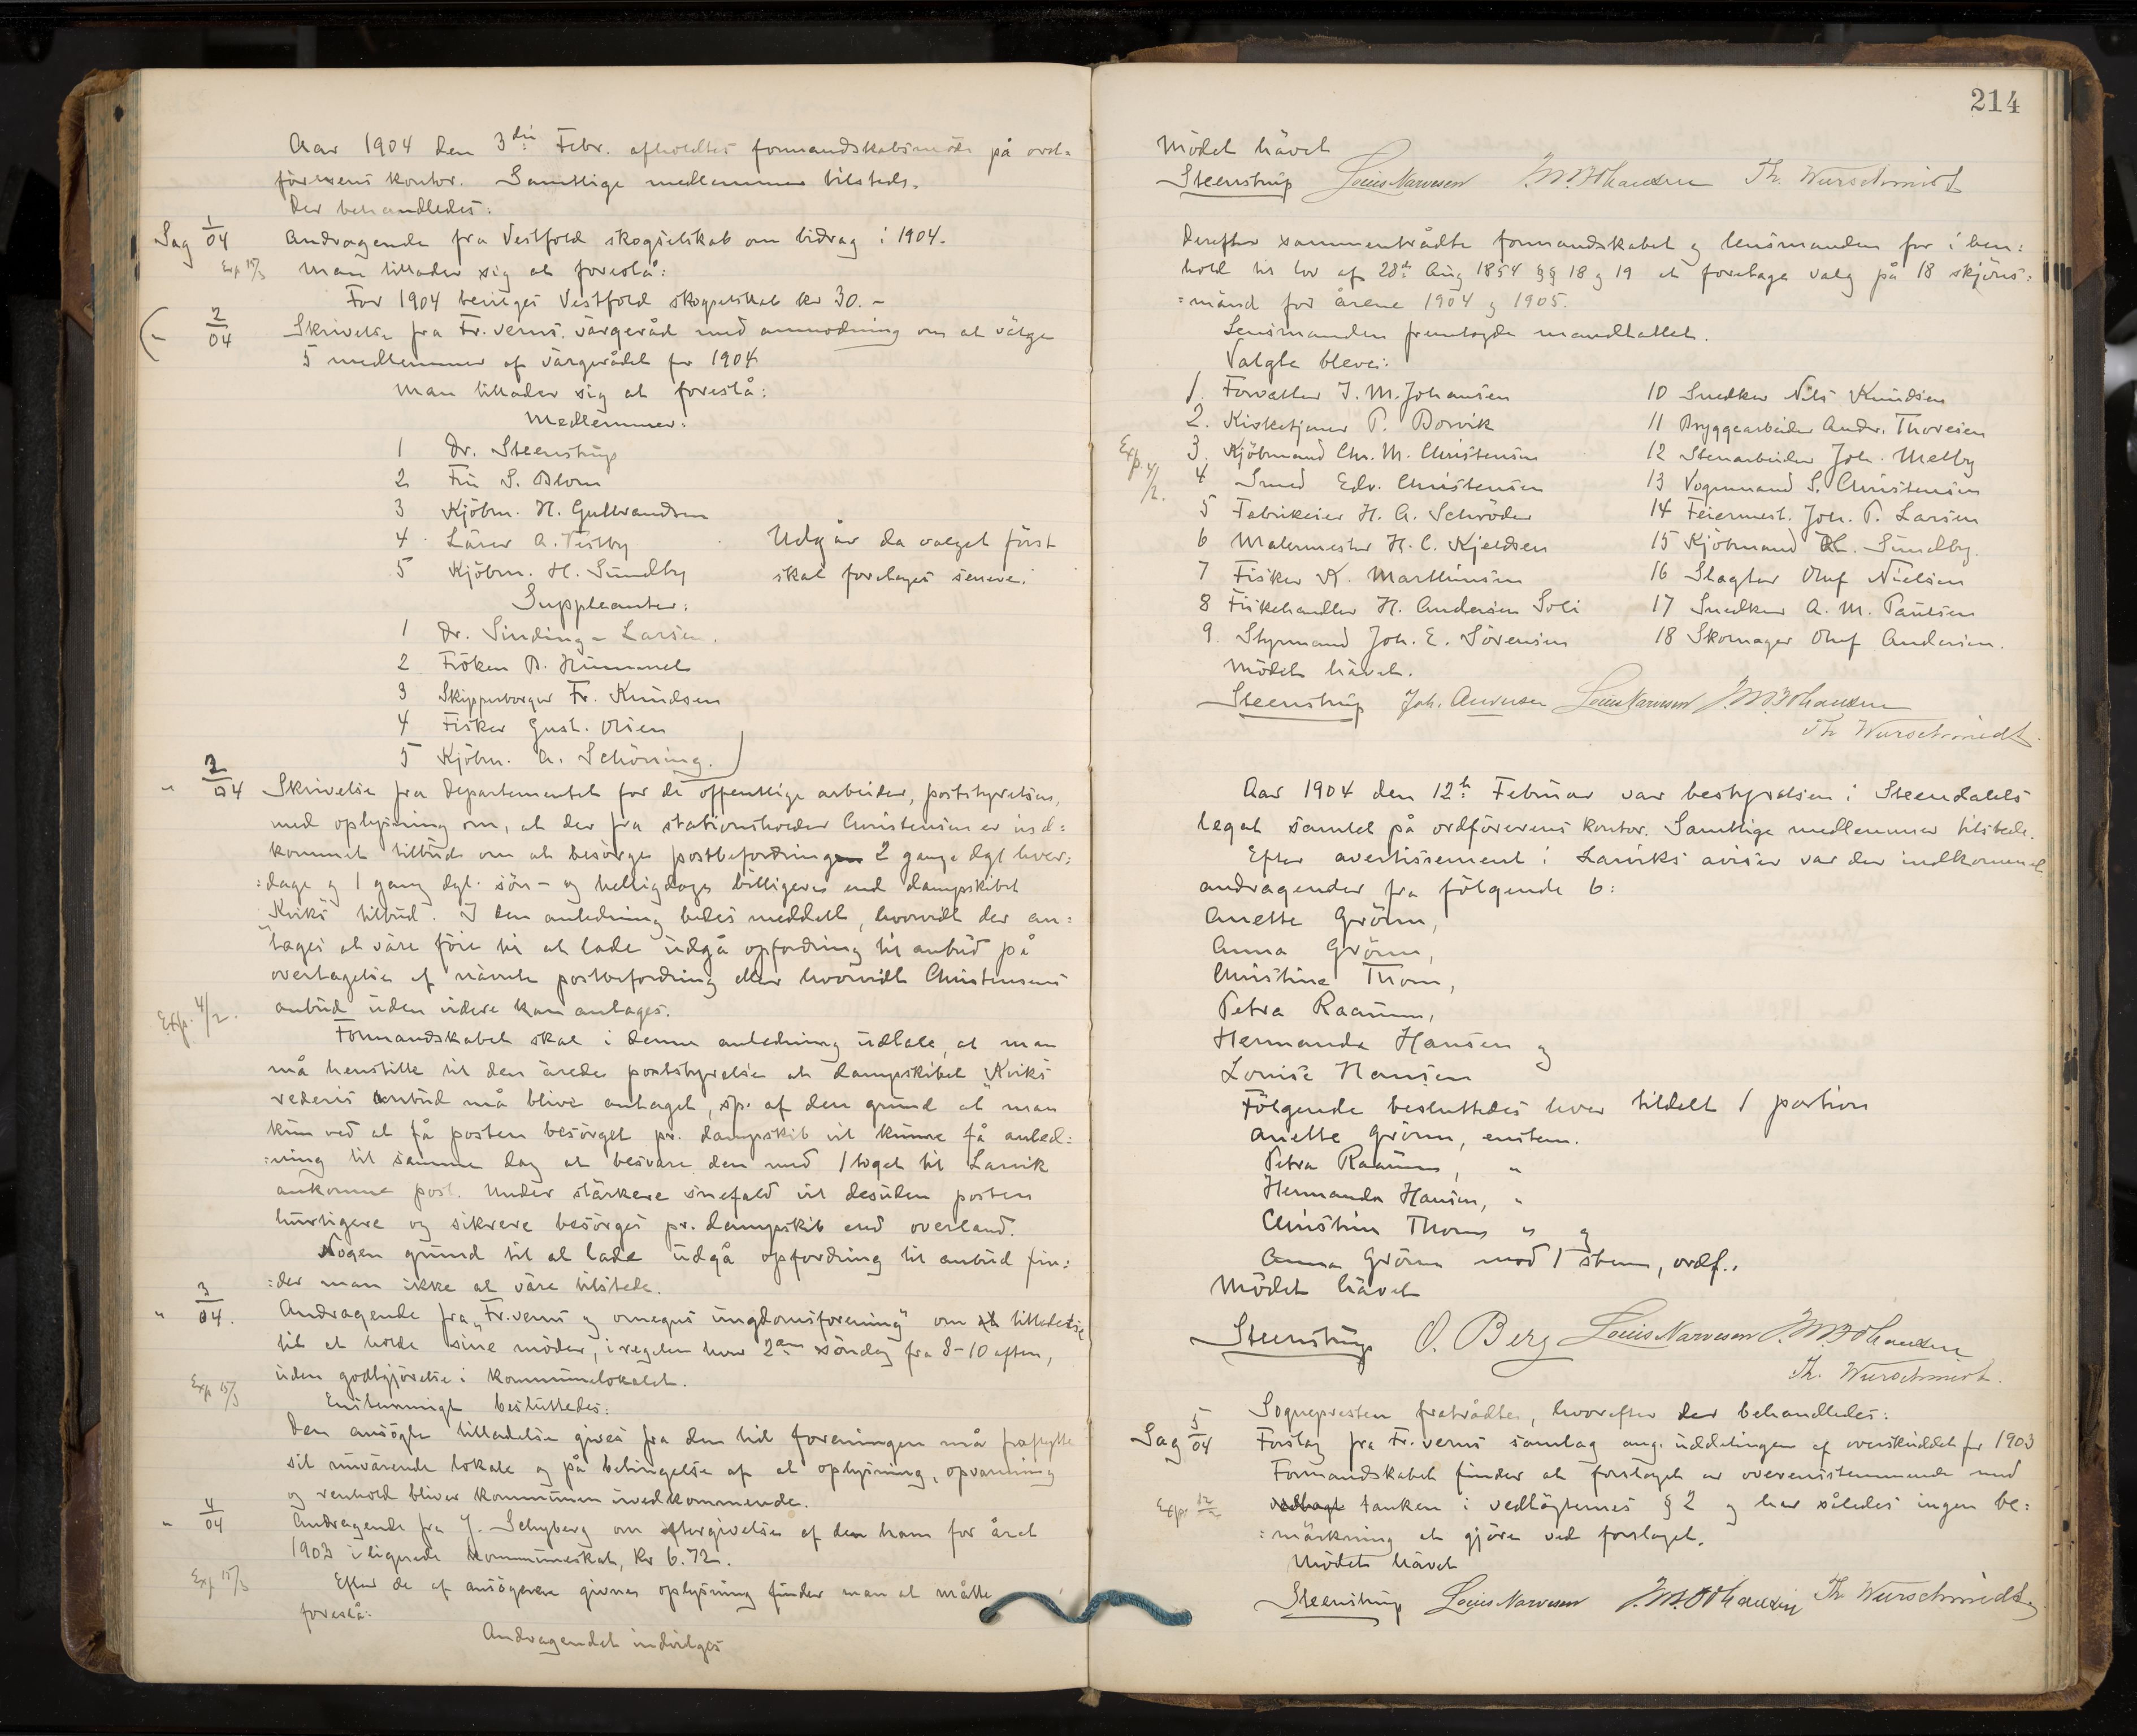 Aar 1904 den 3die Febr. afholdtes formandskabsmöde på ord=
förerens kontor. Samtlige medlemmer tilstede.
Der behandledes:
Sag 1/04 Andragende fra Vestfold skogselskab om bidrag i 1904.
Exp 15/3 Man tillader sig at foreslå:
For 1904 bevilges Vestfold skogselskab kr 30.-
" 2/04 Skrivelse fra Fr.verns værgeråd med anmodning om at välge
5 medlemmer af värgerådet for 1904
Man tillader sig at foreslå:
Medlemmer:
1 Dr. Steenstrup
2 Fru S. Blom
3 Kjöbm. H. Gulbrandsen
4 Lärer A. Vestby
5 Kjöbm. H. Sundby
Udgår da valget först
skal foretages senere.
Suppleanter:
1 Dr. Sinding-Larsen.
2 Fröken B. Hummel
3 Skipperborger Fr. Knudsen
4 Fisker Gust. Olsen
5 Kjöbm. A. Schöning.
" 2/04 Skrivelse fra Departementet for de offentlige arbeider, poststyrelsen,
med oplysning om, at der fra stationsholder Christensen er ind=
kommet tilbud om at besörge postbefordringen 2 gange dgl. hver=
=dage og 1 gang dgl. sön- og helligdage billigere end dampskibet
"Kviks" tilbud. I den anledning bedes meddelt, hvorvidt der an=
tages at väre föie til at lade udgå opfordring til anbud på
overtagelse af nävnte postbefordring eller hvorvidt Christensens
anbud uden videre kan antages.
Exp. 4/2.
Formandskabet skal i denne anledning udtale, at man
må henstille til den ärede poststyrelse at dampskibet "Kviks"
rederis anbud må blive antaget, sp. af den grund at man
kun ved at få posten besörget pr. dampskib vil kunne få anled=
=ning til samme dag at besvare den med 1 toget til Larvik
ankomne post. Under stärkere snefald vil desuden posten
hurtigere og sikrere besörges pr. dampskib end overland.
Nogen grund til at lade udgå opfordring til anbud fin=
=der man ikke at väre tilstede.
" 3/04. Andragende fra "Fr.verns og omegns ungdomsforening" om tilladelse
til at holde sine möder, i regelen hver 2den söndag fra 8-10 aften,
uden godtgjörelse i kommunelokalet.
Exp 15/3
Enstemmigt besluttedes:
Den ansögte tilladelse gives fra den tid foreningen må fraflytte
sit nuvärende lokale og på betingelse af at oplysning, opvarming
og renhold bliver kommunen uvedkommende.
" 4/04 Andragende fra J. Schyberg om eftergivelse af den ham for året
1903 ilignede kommuneskat, kr 6.72.
Exp 15/3
Efter de af ansögeren givne oplysning finder man at måtte
foreslå:
Andragendet indvilges
214
Mödet hävet
Steenstrup Louis Narvesen J.M. Johansen Th. Wurschmidt
Derefter sammentrådte formandskabet og lensmanden for i hen=
hold til lov af 28de Aug 1854 §§ 18 og 19 at foretage valg på 18 skjöns=
=mänd for årene 1904 og 1905.
Lensmanden fremlagde mandtallet.
Valgte bleve:
1. Forvalter J. M. Johansen
2. Kirketjener P. Borvik
3. Kjöbmand Chr. M. Christensen
Exp. 4/2.
4 Smed Edv. Christensen
5 Fabrikeier H. A. Schröder
6 Malermester H. C. Kjeldsen
7 Fisker K. Marthinsen
8 Fiskehandler H. Andersen Soli
9. Styrmand Joh. E. Sörensen
10 Snedker Nils Knudsen
11 Bryggearbeider Andr. Thoresen
12 Stenarbeider Joh. Melby
13 Vognmand S. Christensen
14 Feiermest. Joh. P. Larsen
15 Kjöbmand H. Sundby.
16 Slagter Oluf Nielsen
17 Snedker A. M. Paulsen
18 Skomager Oluf Andersen.
Mödet hävet.
Steenstrup Joh. Louis Narvesen J.M. Johansen
Th Wurschmidt
Aar 1904 den 12te Februar var bestyrelsen i Steendahls
legat samlet på ordförerens kontor. Samtlige medlemmer tilstede.
Efter avertissement i Larviks aviser var der indkommet
andragender fra fölgende 6:
Anette Grönn,
Anna Grönn,
Christine Thorn,
Petra Raaum,
Hermanda Hansen og
Louise Hansen
Fölgende besluttedes hver tildelt 1 portion
Anette Grönn, enstem.
Petra Raaum, "
Hermanda Hansen, "
Christine Thorn " og
Anna Grönn mod 1 stem, ordf..
Mödet hävet
Steenstrup O. Berg Louis Narvesen J.M. Johansen
Th. Wurschmidt.
Sognepresten fratrådte, hvorefter der behandledes:
Sag 5/04 Forslag fra Fr.verns samlag ang. uddelingen af overskuddet for 1903
Formandskabet finder at forslaget er overensstemmende med
Exp. vedtagt tanken i vedtägternes § 2 og har således ingen be=
=märkning at gjöre ved forslaget.
Mödet hävet
Steenstrup Louis Narvesen J.M. Johansen Th Wurschmidt